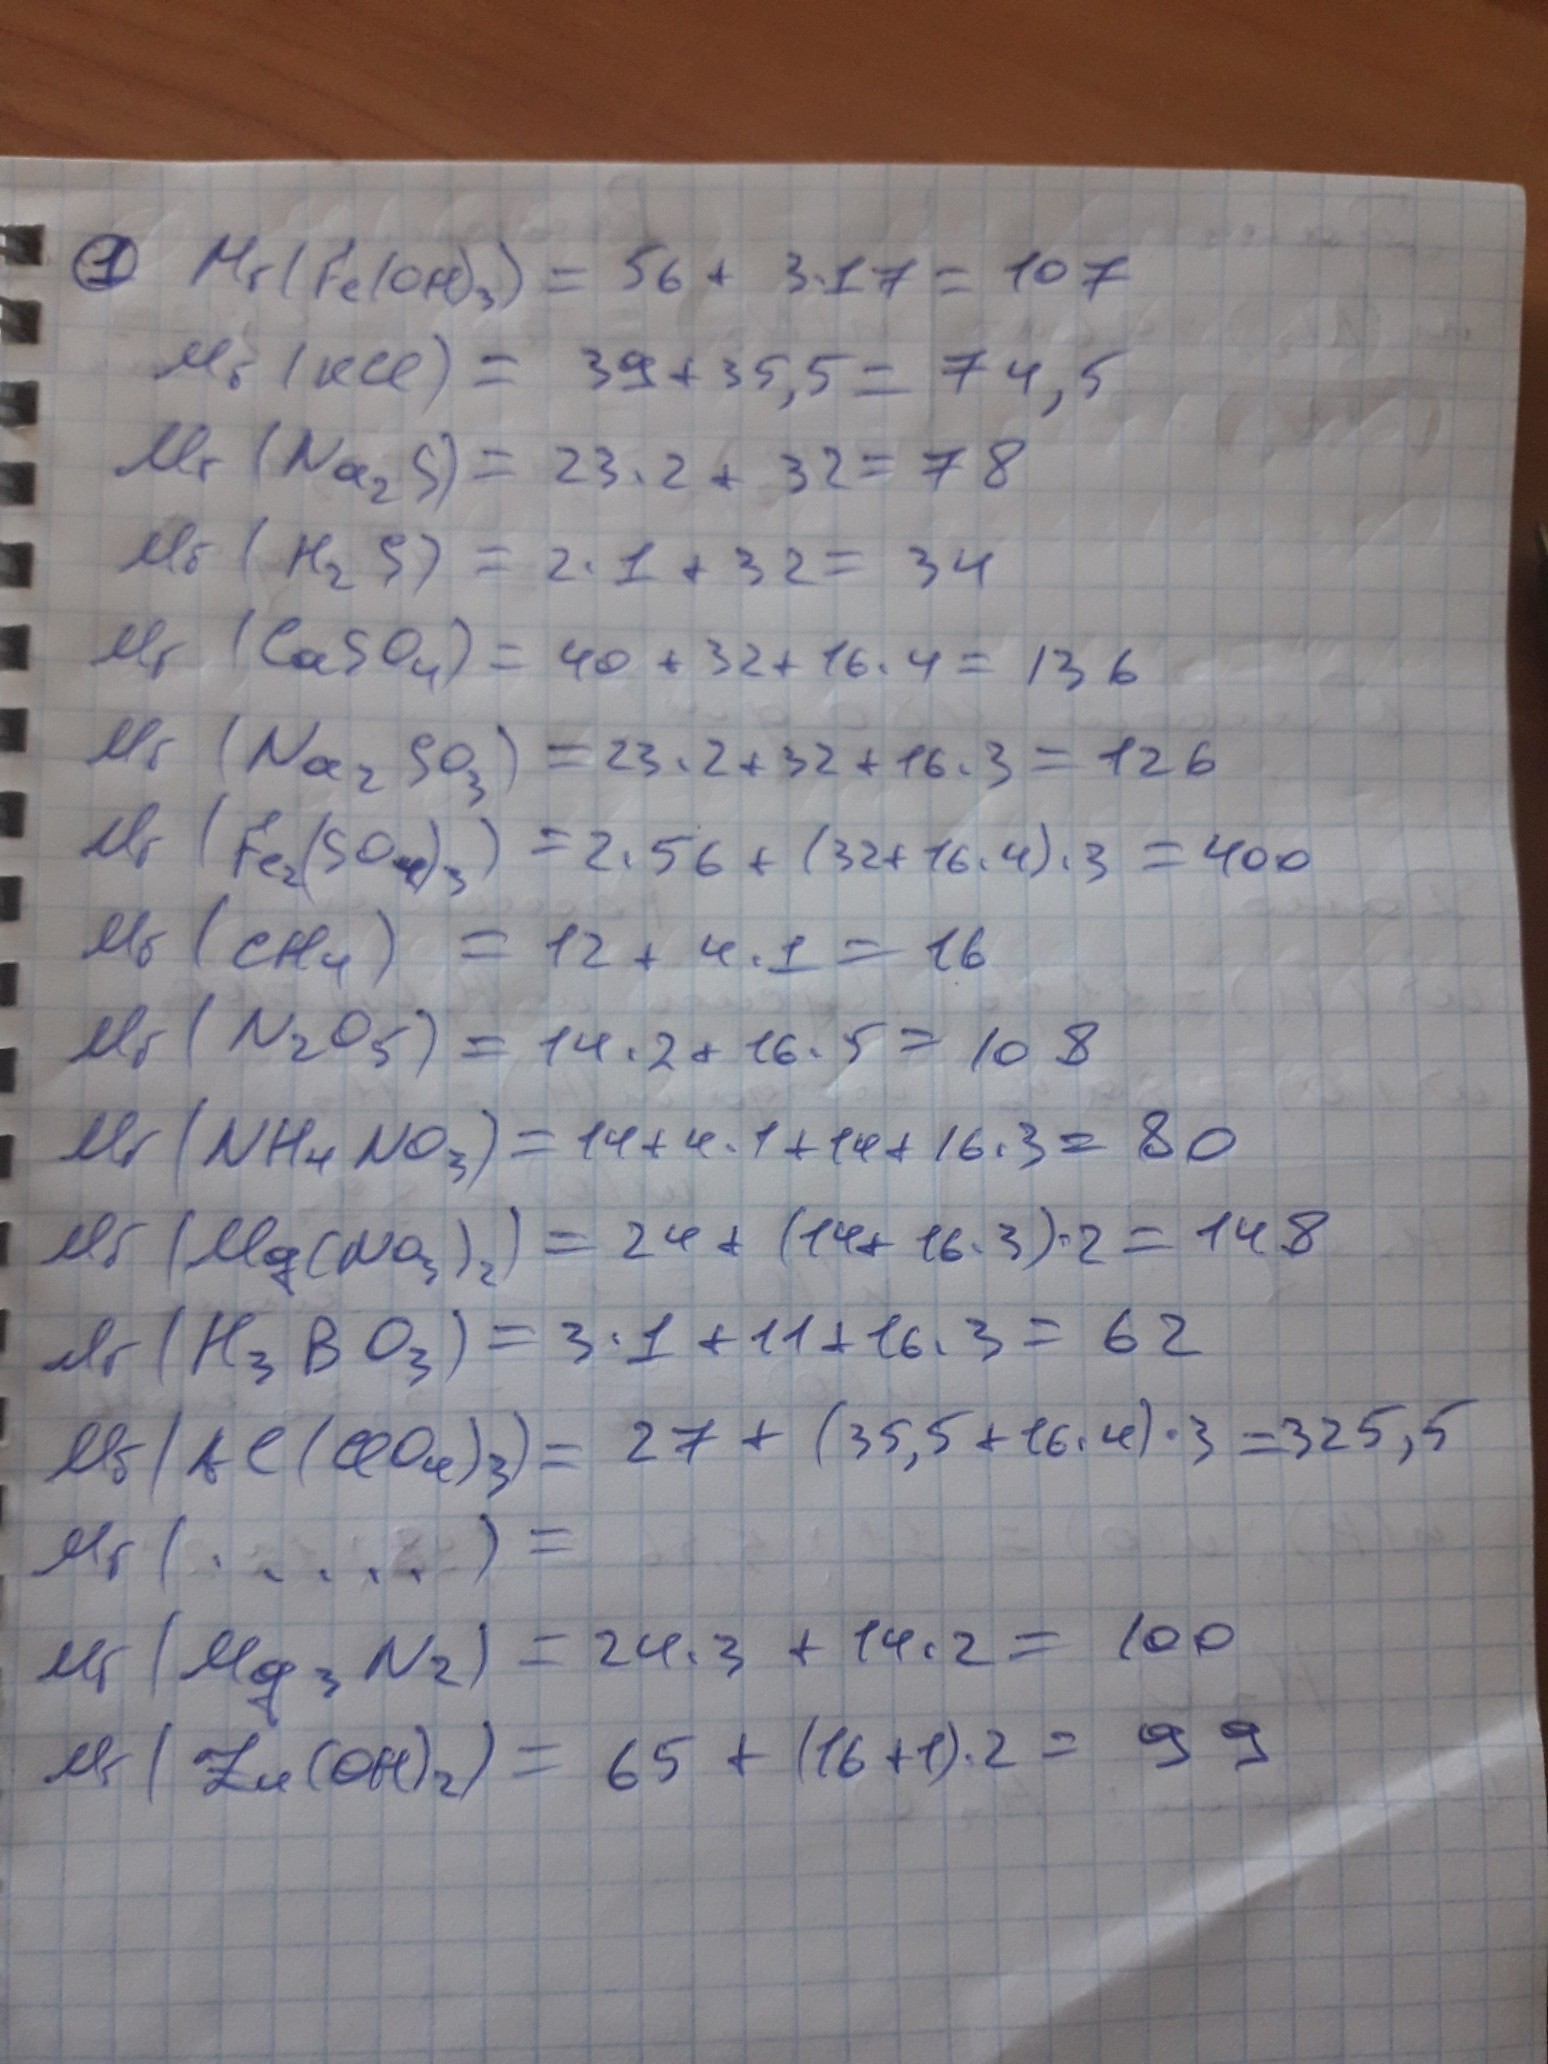 ① Mr(Fe(OH)₃) = 56 + 3·17 = 107
Mr (KCl) = 39+35,5 = 74,5
Mr (Na₂S) = 23·2 + 32 = 78
Mr (H₂S) = 2·1 + 32 = 34
Mr (CaSO₄) = 40 + 32 + 16·4 = 136
Mr (Na₂SO₃) = 23·2 + 32 + 16·3 = 126
Mr (Fe₂(SO₄)₃) = 2·56 + (32+16·4)·3 = 400
Mr (CH₄) = 12 + 4·1 = 16
Mr (N₂O₅) = 14·2 + 16·5 = 108
Mr (NH₄NO₃) = 14+4·1+14+16·3 = 80
Mr (Mg(NO₃)₂) = 24 + (14+16·3)·2 = 148
Mr (H₃BO₃) = 3·1 + 11 + 16·3 = 62
Mr (Al(ClO₄)₃) = 27 + (35,5+16·4)·3 = 325,5
Mr (. . . . . .) =
Mr (Mg₃N₂) = 24·3 + 14·2 = 100
Mr (Zn(OH)₂) = 65 + (16+1)·2 = 99